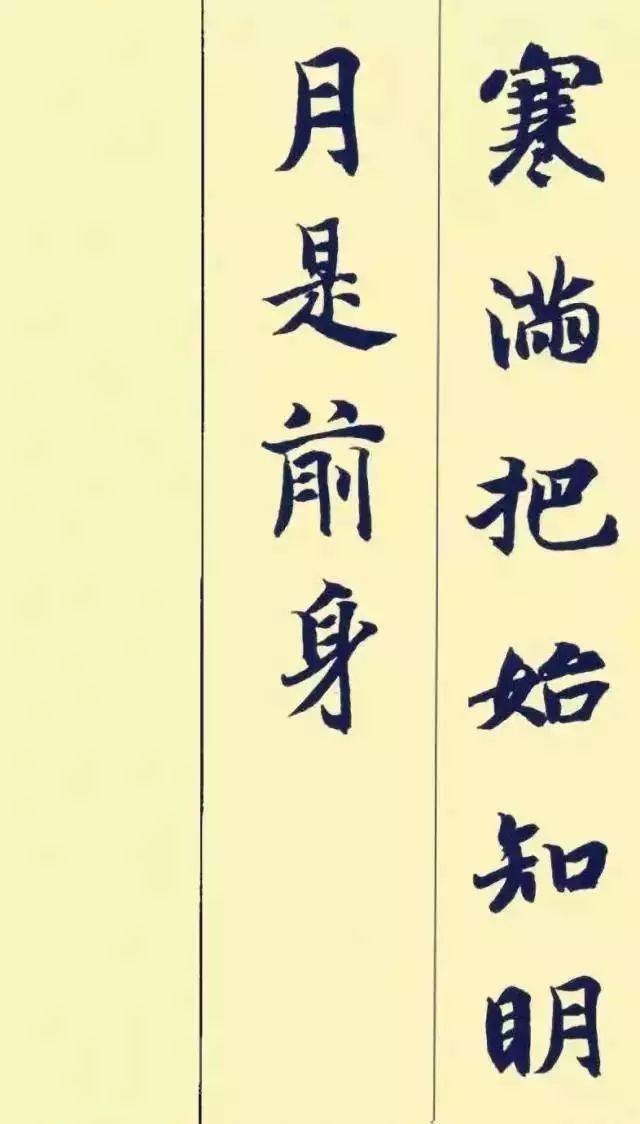 寒满把始知明
月是前身